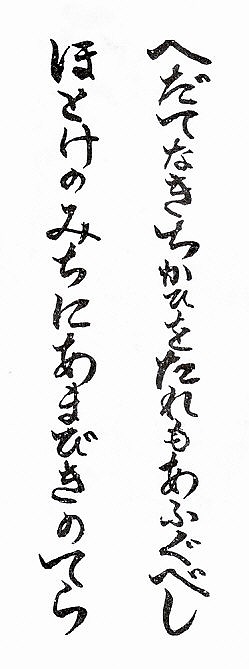 へだてなきちかひをたれもあふぐべし
ほとけのみちにあまびきのてら